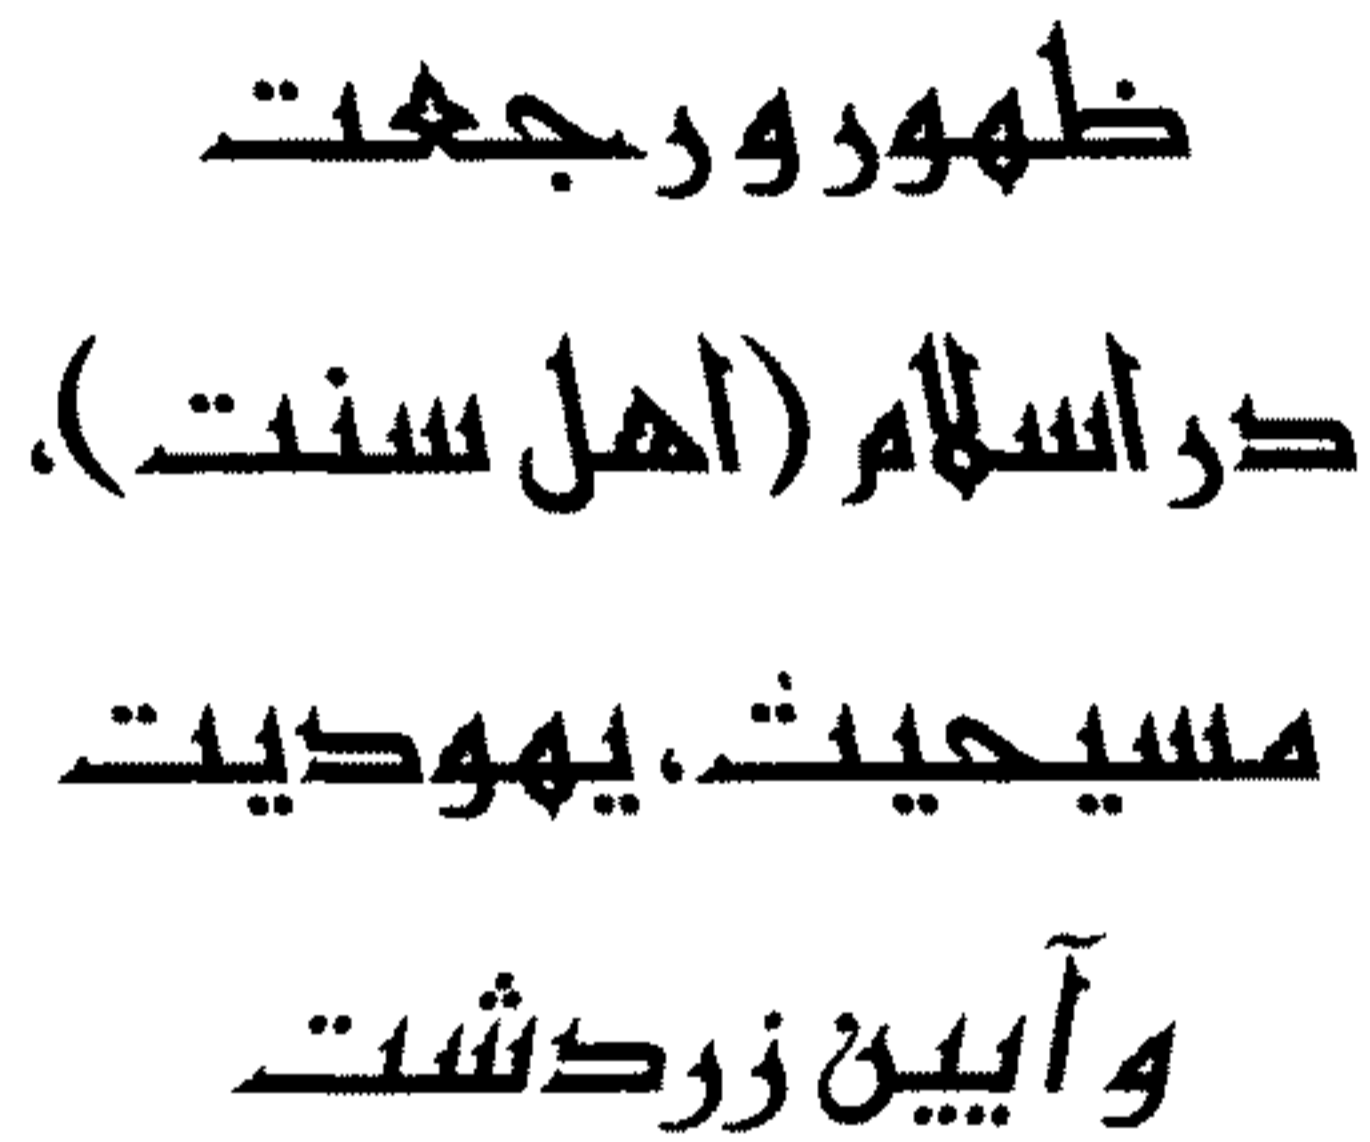 ظهور و رجعت
در اسلام (اهل سنت)،
مسیحیت، یهودیت
و آیین زردشت